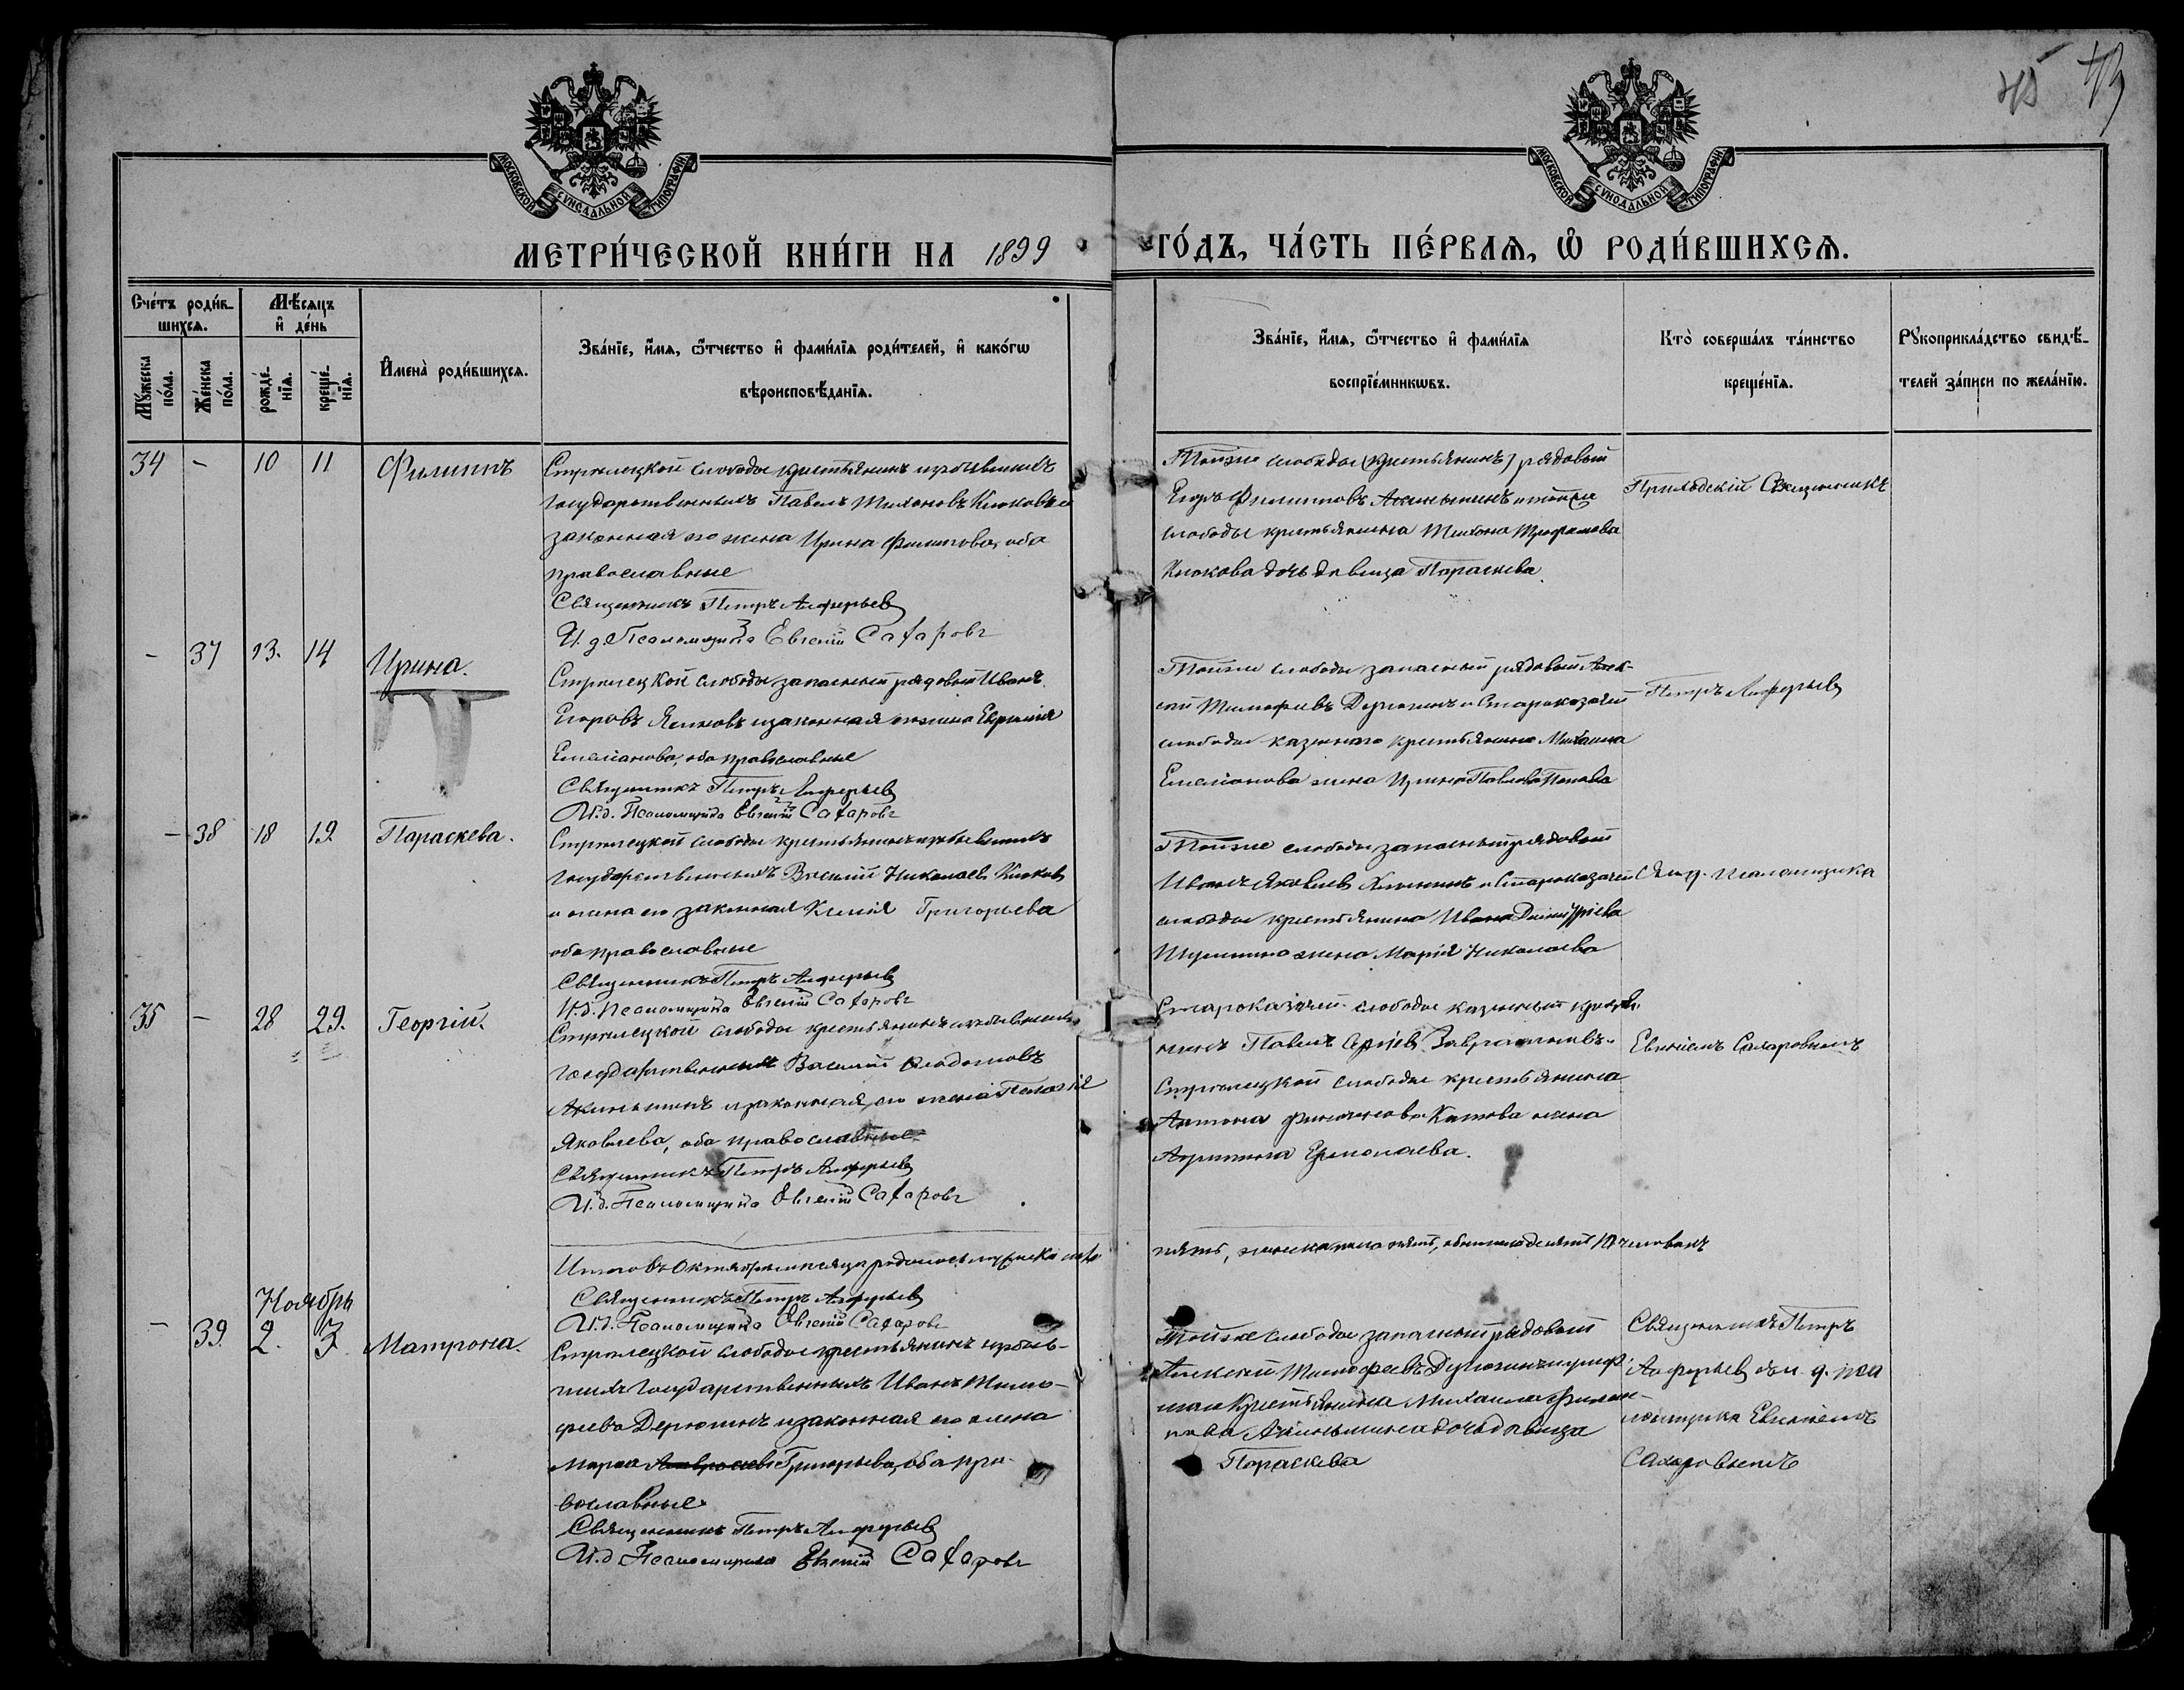 45 43
МОСКОВСКОЙ СѴНОДАЛЬНОЙ ТИПОГРАФІИ
МОСКОВСКОЙ СѴНОДАЛЬНОЙ ТИПОГРАФІИ
МЕТРИ́ЧЕСКОЙ КНИ́ГИ НА 1899 ГО́ДЪ, ЧА́СТЬ ПЕ́РВАѦ, Ѽ РОДИ́ВШИХСѦ.
Сче́тъ роди́вшихсѧ.
Мꙋ́жеска по́ла.
Же́нска по́ла.
Мѣ́сѧцъ и҆ де́нь
рожде́нїѧ.
креще́нїѧ.
И҆мена̀ роди́вшихсѧ.
Зва́нїе, и҆́мѧ, ѻ҆́тчество и҆ фами́лїѧ роди́телей, и҆ како́гѡ
вѣроисповѣ́данїѧ.
Зва́нїе, и҆́мѧ, ѻ҆́тчество и҆ фами́лїѧ
воспрїе́мникѡвъ.
Кто̀ соверша́лъ та́инство
креще́нїѧ.
Рꙋкоприкла́дство свидѣ́телей за́писи по жела́нїю.
34 - 10 11 Филиппъ
Стрѣлецкой слободы крестьянинъ изъ бывшихъ
государственныхъ Павелъ Тихоновъ Клюковъ и
законная его жена Ирина Филиппова, оба
православные
Священникъ Петръ Алферьевъ
И. д. Псаломщика Евгеній Сахаровъ
Той же слободы (крестьянинъ) рядовый
Егоръ Филипповъ Акиньшинъ и той же
слободы крестьянина Тихона Трофимова
Клюкова дочь дѣвица Параскева.
Приходскій Священникъ
- 37 13. 14 Ирина.
Стрѣлецкой слободы запасный рядовый Иванъ
Егоровъ и законная его жена
Емеліанова, оба православные
Священникъ Петръ Алферьевъ
И. д. Псаломщика Евгеній Сахаровъ
Той же слободы запасный рядовый Алексѣй Тимофеевъ Дерюгинъ и Староказачей
слободы казеннаго крестьянина Михаила
Емеліанова жена Ирина Павлова Попова
Петръ Алферьевъ
- 38 18 19 Параскева.
Стрѣлецкой слободы крестьянинъ изъ бывшихъ
государственныхъ Василій Николаевъ Клюковъ
и жена его законная Ксенія Григорьева
оба православные
Священникъ Петръ Алферьевъ
И. д. Псаломщика Евгеній Сахаровъ
Той же слободы запасный рядовый
Иванъ Яковлевъ и Староказачей
слободы крестьянина Ивана Димитріева
жена Марія Николаева
съ и. д. псаломщика
35 - 28 29. Георгій.
Стрѣлецкой слободы крестьянинъ изъ бывшихъ
государственныхъ Василій
Акиньшинъ и законная его жена Пелагія
Яковлева, оба православные
Священникъ Петръ Алферьевъ
И. д. Псаломщика Евгеній Сахаровъ
Староказачей слободы казенный крестьянинъ Павелъ Сергіевъ и
Стрѣлецкой слободы крестьянина
Антона жена
Ермолаева.
Евгеніемъ Сахаровымъ
Итого въ Октябрѣ мѣсяцѣ родилось мужеска пола
пять, женска пола пять, обоего пола десять 10 человѣкъ
Священникъ Петръ Алферьевъ
И. д. Псаломщика Евгеній Сахаровъ
Ноябрь
- 39. 2. 3. Матрона.
Стрѣлецкой слободы крестьянинъ изъ бывшихъ государственныхъ Иванъ Тимофеевъ Дерюгинъ и законная его жена
Марѳа Григорьева, оба православные.
Священникъ Петръ Алферьевъ
И. д. Псаломщика Евгеній Сахаровъ
Той же слободы запасный рядовый
Алексѣй Тимофеевъ Дерюгинъ и
крестьянина Михаила Филиппова Акиньшина дочь дѣвица
Параскева
Священникъ Петръ
Алферьевъ съ и. д. псаломщика Евгеніемъ
Сахаровымъ